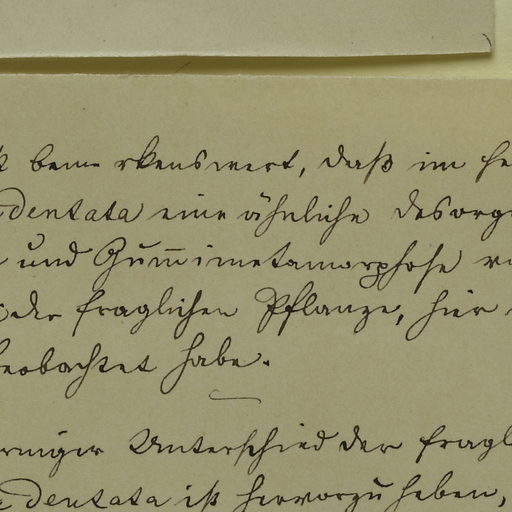 bemerkenswert, daß im
dentata eine ähnliche Desorg
und Gummimetamorphose
der fraglichen Pflanze, hier
beobachtet habe.
Unterschied der fragl
dentata ist hervorzuheben,